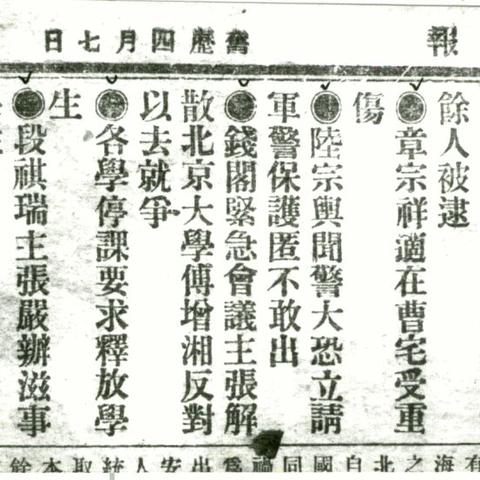 報
舊歷四月七日
餘人被逮
●章宗祥適在曹宅受重
傷
●陸宗輿聞警大恐立請
軍警保護匿不敢出
●錢閣緊急會議主張解
散北京大學傅增湘反對
以去就爭
●各學停課要求釋放學
生
●段祺瑞主張嚴辦滋事
有海之北自國同
出安人統取本餘